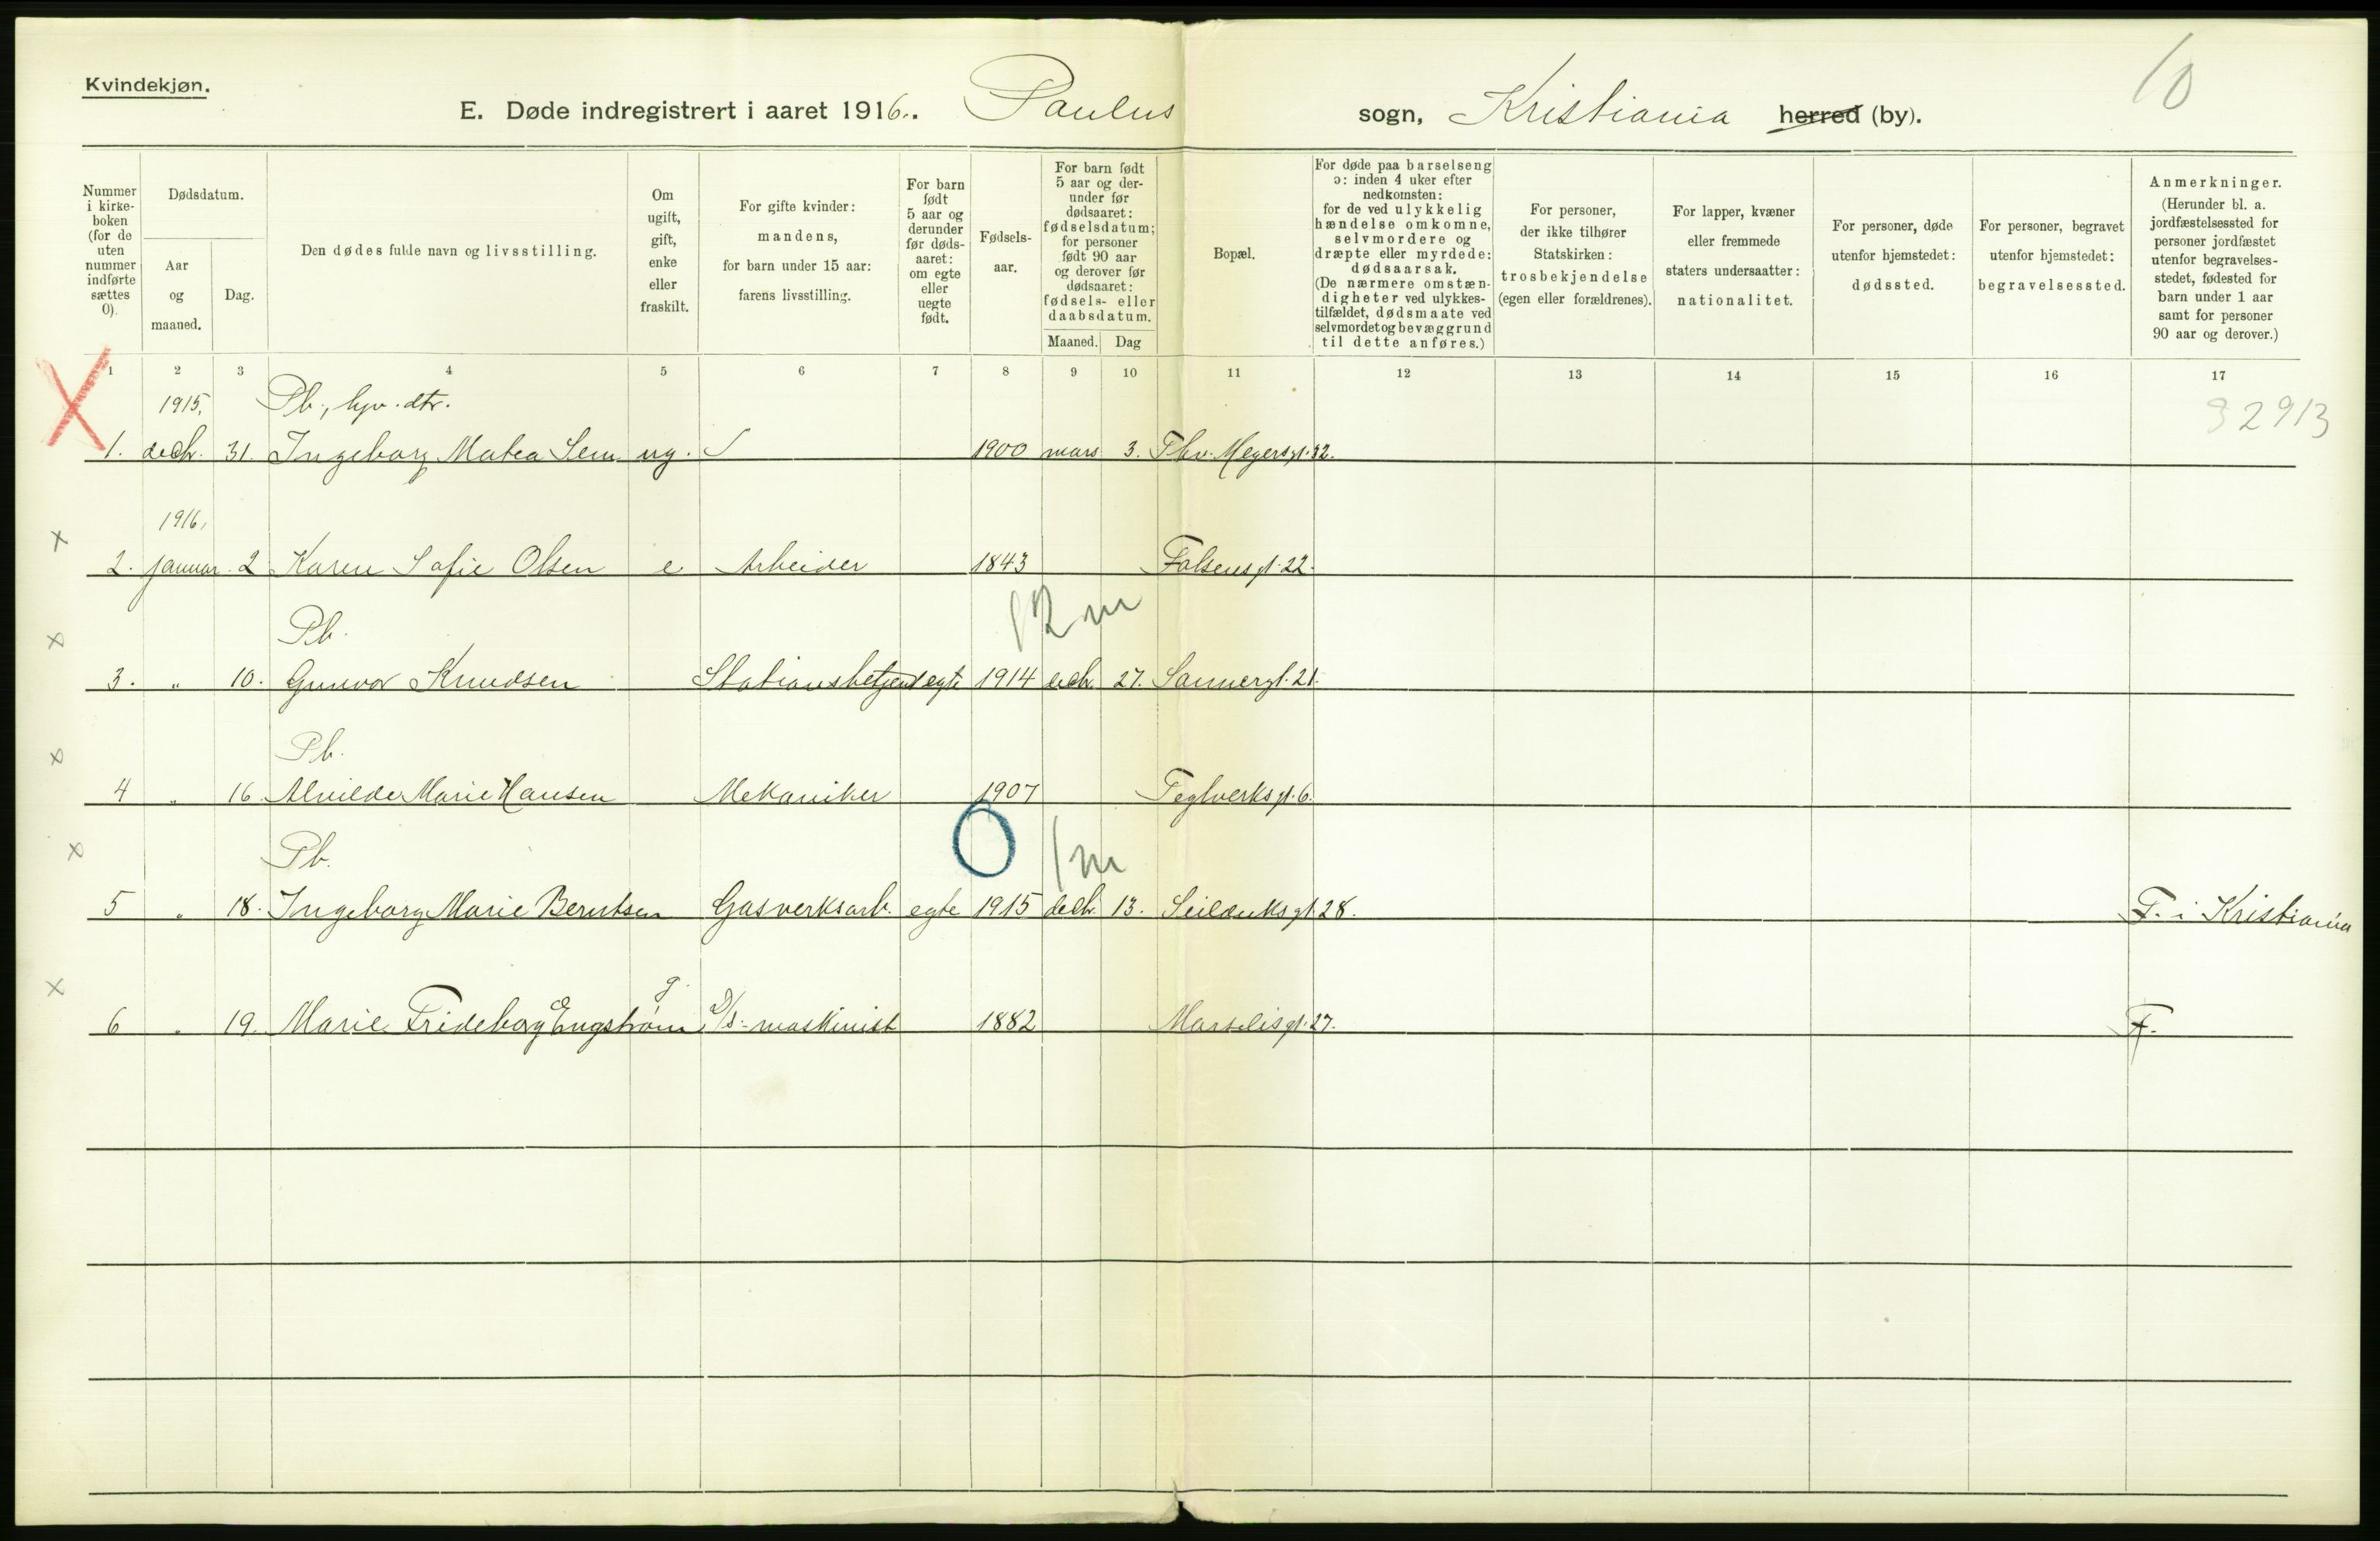 Kvindekjøn.
10
E. Døde indregistrert i aaret 1916. Paulus sogn, Kristiania herred (by).
Nummer i kirkeboken (for de uten nummer indførte sættes 0).
Dødsdatum.
Aar og maaned.
Dag.
Den dødes fulde navn og livsstilling.
Om ugift, gift, enke eller fraskilt.
For gifte kvinder: mandens, for barn under 15 aar: farens livsstilling.
For barn født 5 aar og derunder før dødsaaret: om egte eller uegte født.
Fødselsaar.
For barn født 5 aar og derunder før dødsaaret: fødselsdatum; for personer født 90 aar og derover før dødsaaret: fødsels- eller daabsdatum.
Maaned. Dag
Bopæl.
For døde paa barselseng ɔ: inden 4 uker efter nedkomsten: for de ved ulykkelig hændelse omkomne, selvmordere og dræpte eller myrdede: dødsaarsak. (De nærmere omstændigheter ved ulykkestilfældet, dødsmaate ved selvmordet og bevæggrund til dette anføres.)
For personer, der ikke tilhører Statskirken: trosbekjendelse (egen eller forældrenes).
For lapper, kvæner eller fremmede staters undersaatter: nationalitet.
For personer, døde utenfor hjemstedet: dødssted.
For personer, begravet utenfor hjemstedet: begravelsessted.
Anmerkninger. (Herunder bl. a. jordfæstelsessted for personer jordfæstet utenfor begravelsesstedet, fødested for barn under 1 aar samt for personer 90 aar og derover.)
1 2 3 4 5 6 7 8 9 10 11 12 13 14 15 16 17
1915, Pb., hjv. dtr. 32913
1. decb. 31. Ingeborg Matea Lem ug. 1900 mars 3. Thv. Meyersgt. 32.
1916,
2. januar 2 Karen Sofie Olsen e. Arbeider 1843 Falsensgt. 22.
Pb. 12 m
3. " 10. Gunvor Knudsen Stationsbetjent egte 1914 decb. 27. Sannergt. 21.
Pb.
4 " 16. Alvilde Marie Hansen Mekaniker 1907 Teglverksgt. 6.
Pb. 0 1 m
5 " 18. Ingeborg Marie Berntsen Gasverksarb. egte 1915 decb. 13. Seilduksgt. 28. F. i Kristiania
g.
6 " 19. Marie Frideborg Engstrøm D/s.-maskinist 1882 Marselisgt. 27. F.